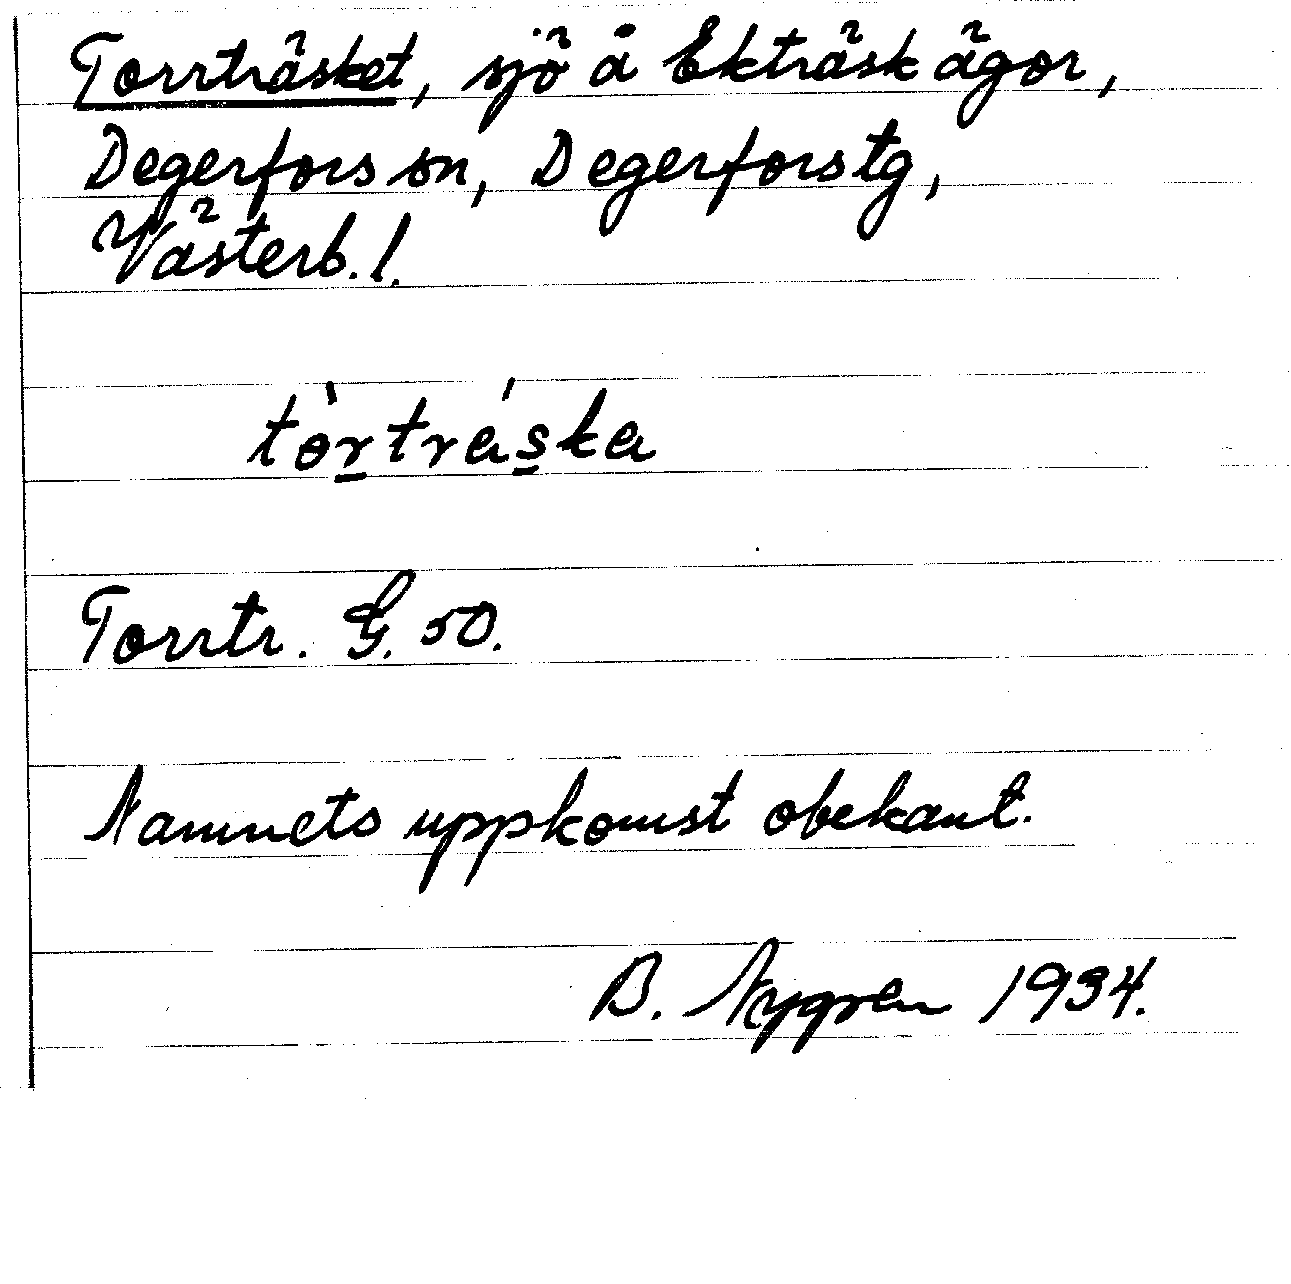 Torrträsket, sjö å Ekträsk ägor,
Degerfors sn, Degerfors tg,
Västerb. l.
tòrtráska
Torrtr. G. 50.
Namnets uppkomst obekant.
B. Nygren 1934.